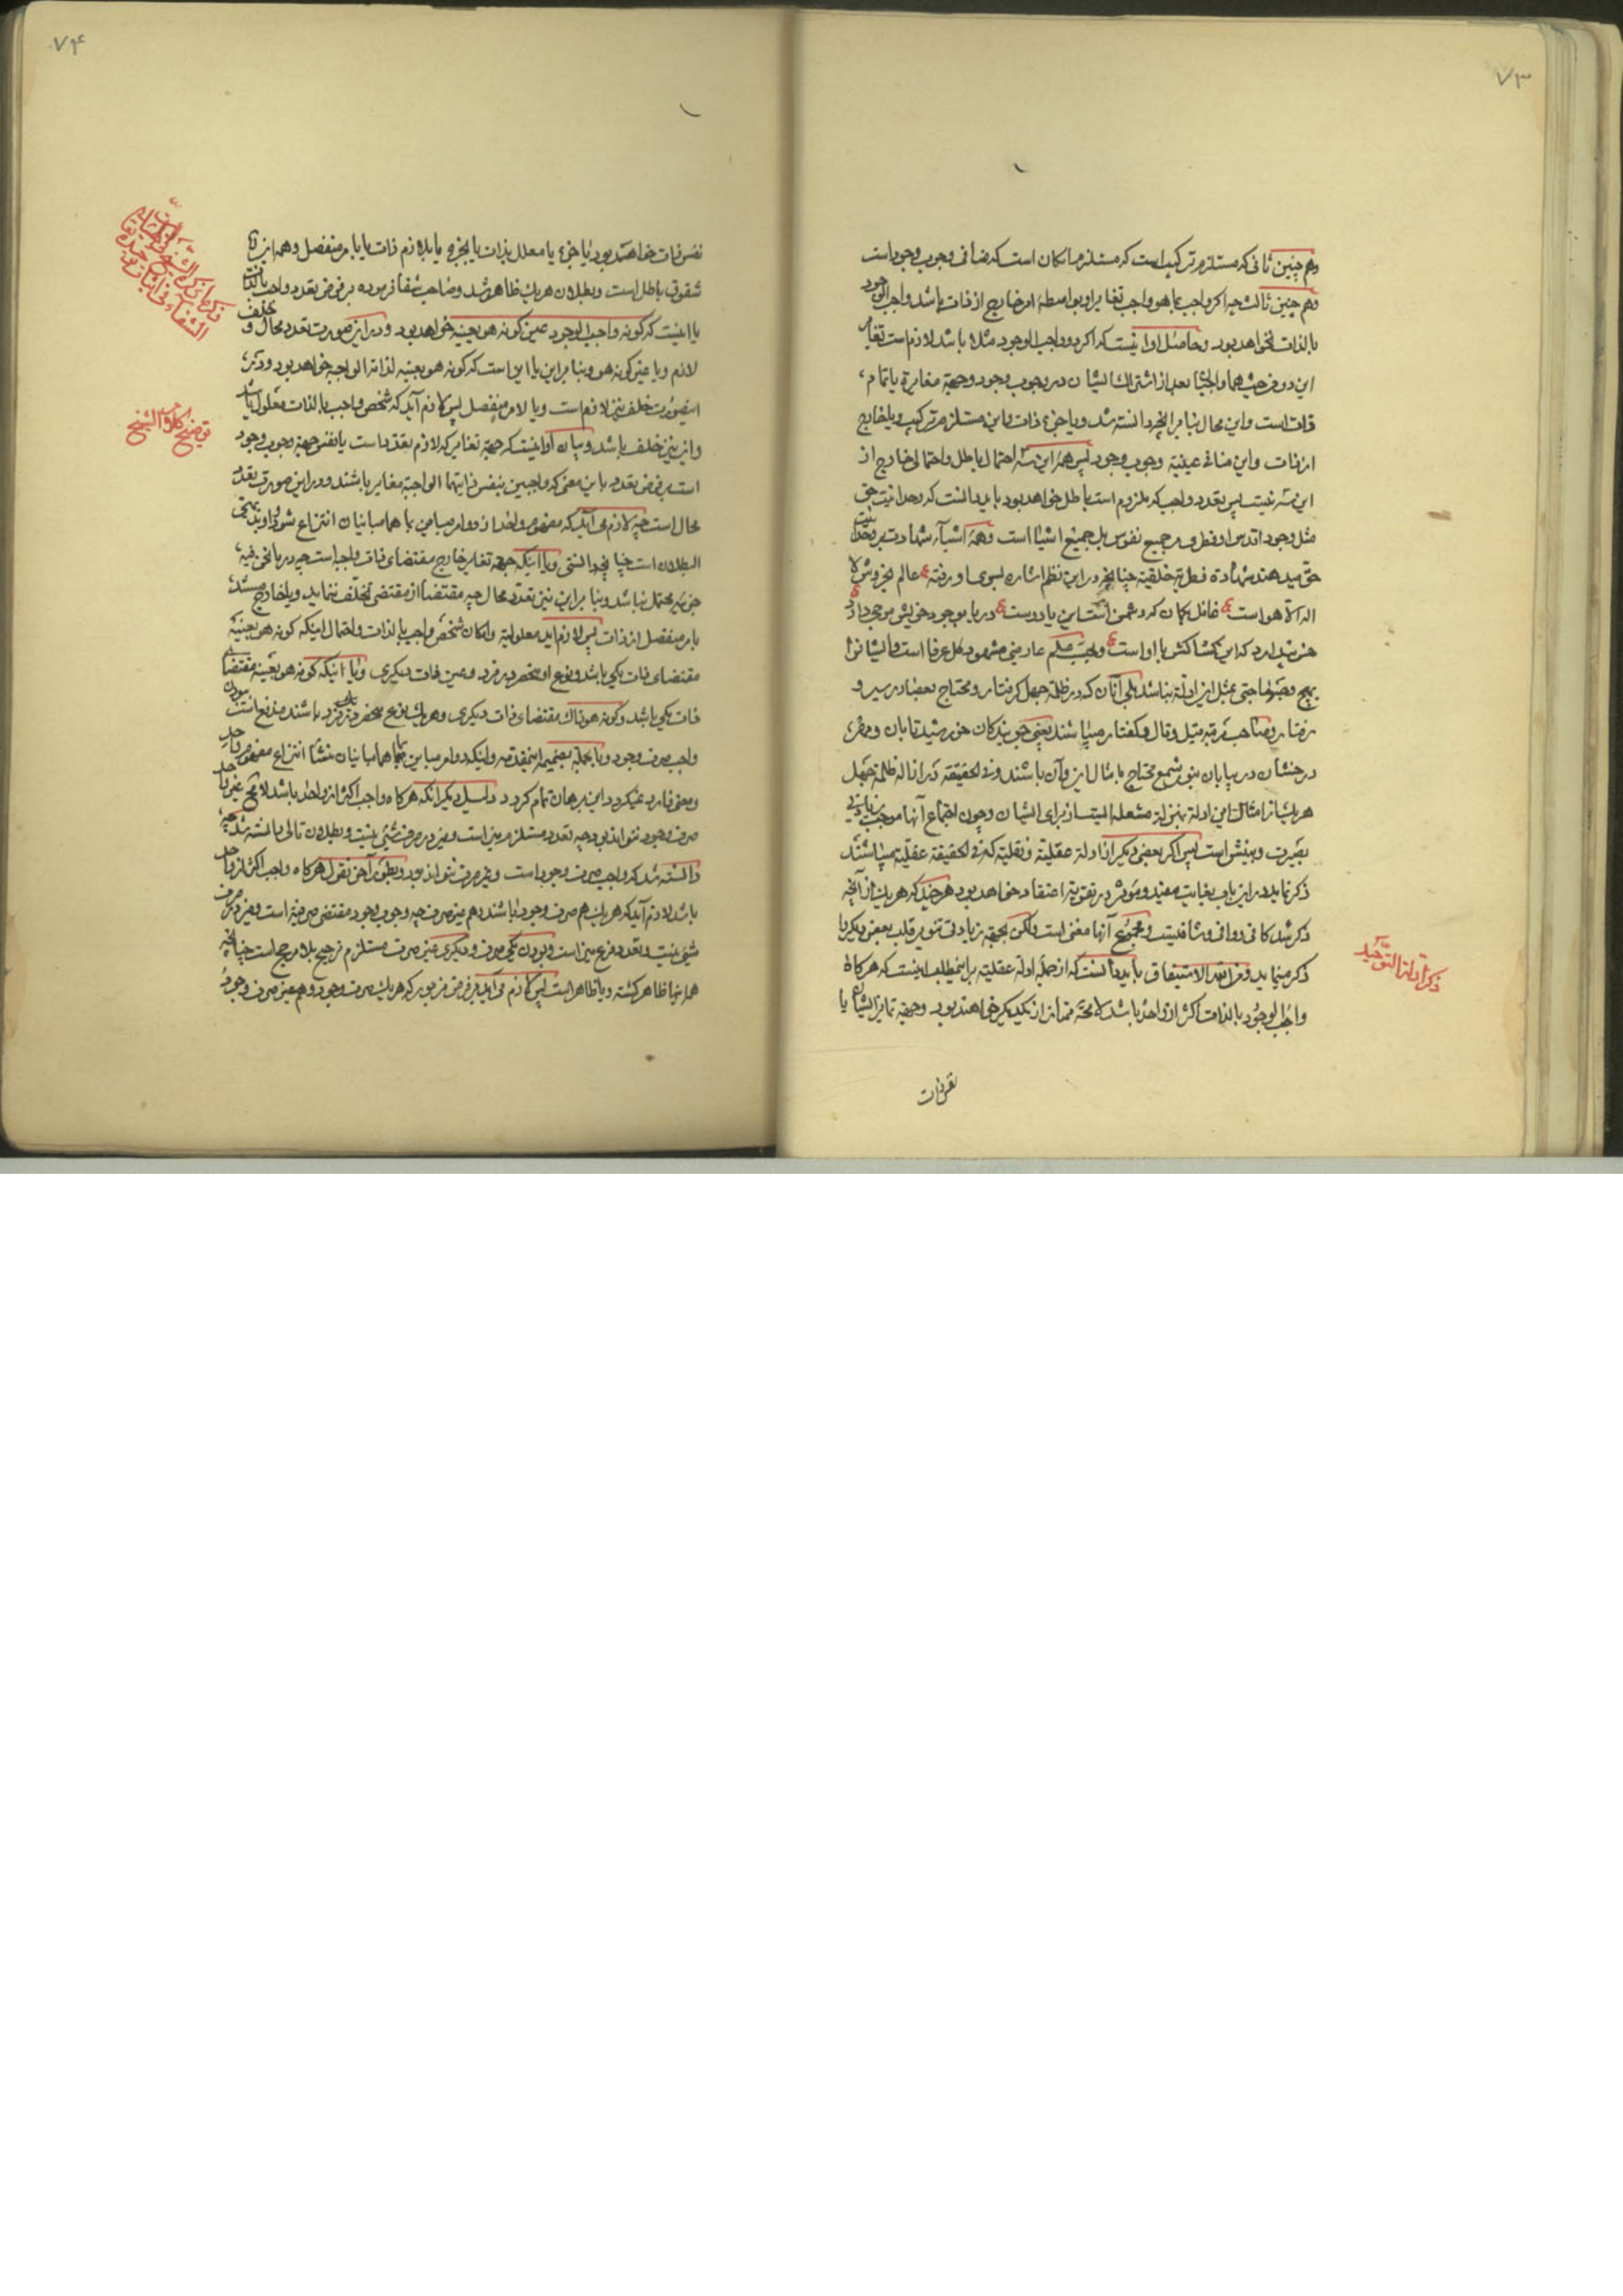 ۷۳
وهم چنین ثانی که مستلزم ترکیب است که مستلزم امکان است که منافی وجوب وجود است
وهم چنین ثالث چه اکر واجب بما هو واجب تغایر او بواسطهٔ امر خارج از ذات باشد واجب الوجود
بالذات نخواهد بود وحاصل او اینست که اکر دو واجب الوجود مثلا باشد لازم است تغایر
این دو من حیث هما واجبان بعد از اشتراک ایشان در وجوب وجود وجهة مغایرة یا تمام
ذات است واین محال بنابر آنچه دانسته شد ویا جزء ذات واین مستلزم ترکیب ویا خارج
از ذات واین منافی عینیة وجوب وجود پس همهٔ این سه احتمال باطل واحتمالی خارج از
این سه نیست پس تعدد واجب که ملزوم است باطل خواهد بود باید دانست که وحدانیت حق
مثل وجود اقدس او فطری جمیع نفوس بل جمیع اشیا است وهمهٔ اشیآء شهادت بر وحدانیت
حق میدهند شهادة فطریة خلقیة چنانچه در این نظم اشاره بسوی او رفته ع عالم بخروش لا
اله الا هو است ع غافل بکمان که دشمن است این یا دوست ع دریا بوجود خویش موجی دارد ع
خس پندارد که این کشاکش با او است ع وواجب علم عارض مشهود کل عرفا است وایشانرا
بهیچ وجه حاجتی بمثل این ادلّه نباشد بلی آنان که در ظلمة جهل کرفتار ومحتاج بعصا در سیر و
رفتار وصاحب مرتبهٔ قیل وقال وکفتار میباشند یعنی جویندکان خورشید تابان ومهر
درخشان در بیابان بنور شمع محتاج بامثال این وآن باشند وفی الحقیقة در ازالهٔ ظلمة جهل
هر یک از امثال این ادلة بمنزلهٔ مشعله ایست از برای ایشان وچون اجتماع آنها موجب زیادتی
بصیرت وبینش است پس اکر بعضی دیکر از ادلهٔ عقلیّة ونقلیّة که فی الحقیقة عقلیّة میباشند
ذکر نماید در این باب بغایت مفید ومؤثر در تقویة اعتقاد خواهد بود هرچند که هر یک از آنچه
ذکر شد کافی ووافی وشافیست ومجموع آنها مغنی است ولکن بجهة زیادتی تنویر قلب بعضی دیکر را
ذکر مینماید ومن الله الاستیفاق باید دانست که از جملهٔ ادلهٔ عقلیّه بر اینمطلب اینست که هرکاه
واجب الوجود بالذات اکثر از واحد باشد لا محة ممتاز از یکدیکر خواهند بود وجهة تمایز ایشان یا
ذکر ادلة التوحید
نفس ذات
۷۴
نفس ذات خواهند بود یا جزء یا معلل بذات یا بجزء یا بلازم ذات یا بامر منفصل وهمهٔ این
شقوق باطل است وبطلان هر یک ظاهر شد وصاحب شفا فرموده بر فرض تعدد واجب بالذات
یا اینست که کونه واجب الوجود عین کونه هو بعینه خواهد بود ودر این صورت تعدد محال وخلف
لازم ویا غیر کونه هو وبنابر این یا این است که کونه هو بعینه لذاته الواجبه خواهد بود ودر
اینصورت خلف نیز لازم است ویا لامر منفصل پس لازم آید که شخص واجب بالذات معلول باشد
واین نیز خلف باشد وبیان او اینست که جهة تغایر که لازم تعدد است یا نفس جهة وجوب وجود
است بر فرض تعدد باین معنی که واجبین بنفس ذاتیهما الواجبة مغایر باشند ودر این صورت تعدد
محال است چه لازم می آید که مفهوم واحد از دو امر مباین بما هما مباینان انتزاع شود واو بدیهی
البطلان است چنانچه دانستی ویا اینکه جهة تغایر خارج مقتضای ذات واجب است چه در ما نحن فیه
جزئیّه محتمل نباشد وبنابر این نیز تعدد محال چه مقتضا از مقتضی تخلف ننماید ویا خارج مستند
بامر منفصل از ذات پس لازم آید معلولیة وامکان شخص واجب بالذات واحتمال اینکه کونه هو بعینه
مقتضای ذات یکی باشد ونوع او منحصر در فرد وعین ذات دیکری ویا اینکه کونه هو بعینه مقتضای
ذات یکی باشد وکونه هو ذاک مقتضای ذات دیکری وهر یک نوع منحصر در فرد باشند مدفوع است
واجب صرف وجود وبالجمله بضمیمهٔ اینمقدمه واینکه دو امر مباین بما هما مباینان منشأ انتزاع مفهوم واحد
ومعنی فارد نمیکردد این برهان تمام کردد دلیل دیکر آنکه هرکاه واجب اکثر از واحد باشد لا مح غیر واحد
صرف وجود نتواند بود چه تعدد مستلزم میز است ومیز در صرف شیئی نیست وبطلان تالی دانسته شد چه
دانسته شد که واجب صرف وجود است وغیر صرف نتواند بود وبطور آخر نقول هرکاه واجب اکثر از واحد
باشد لازم آید که هر یک هم صرف وجود باشند وهم غیر صرف چه وجوب وجود مقتضی صرفیة است ومیز در صرف
شیئی نیست وتعدد فرع میز است وبودن یکی صرف ودیکری غیر صرف مستلزم ترجیح بلا مرجح است چنانچه
همهٔ اینها ظاهر کشته ویا ظاهر است پس لازم می آید بر فرض مزبور که هر یک صرف وجود وهم غیر صرف وجود
توضیح کلام الشیخ